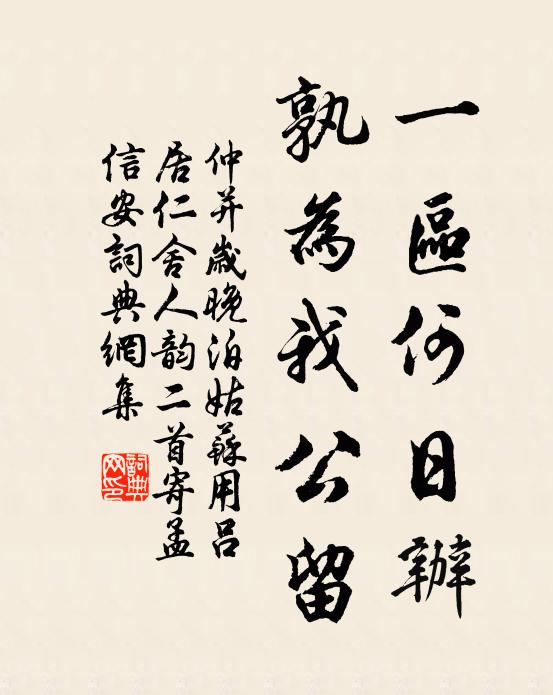 一區何日辦
孰為我公留
仲并歲晚泊姑蘇用吕
居仁舍人韵二首寄孟
信安詞典網集
詞典
网印